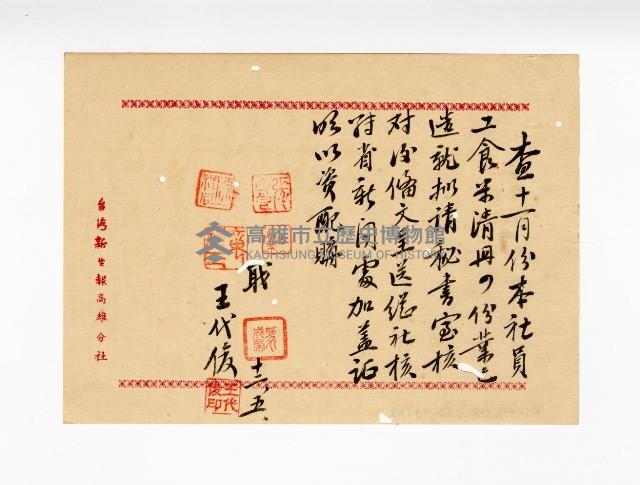 查十一月份本社員
工食米清冊四份業已
造就拟請秘書室核
对後俻文呈送總社核
对省新闻處加盖证
明以资配购
職
王代俊
十二、五、
王代
俊印
台灣新生報高雄分社
高雄市立歷史博物館
KAOHSIUNG MUSEUM OF HISTORY